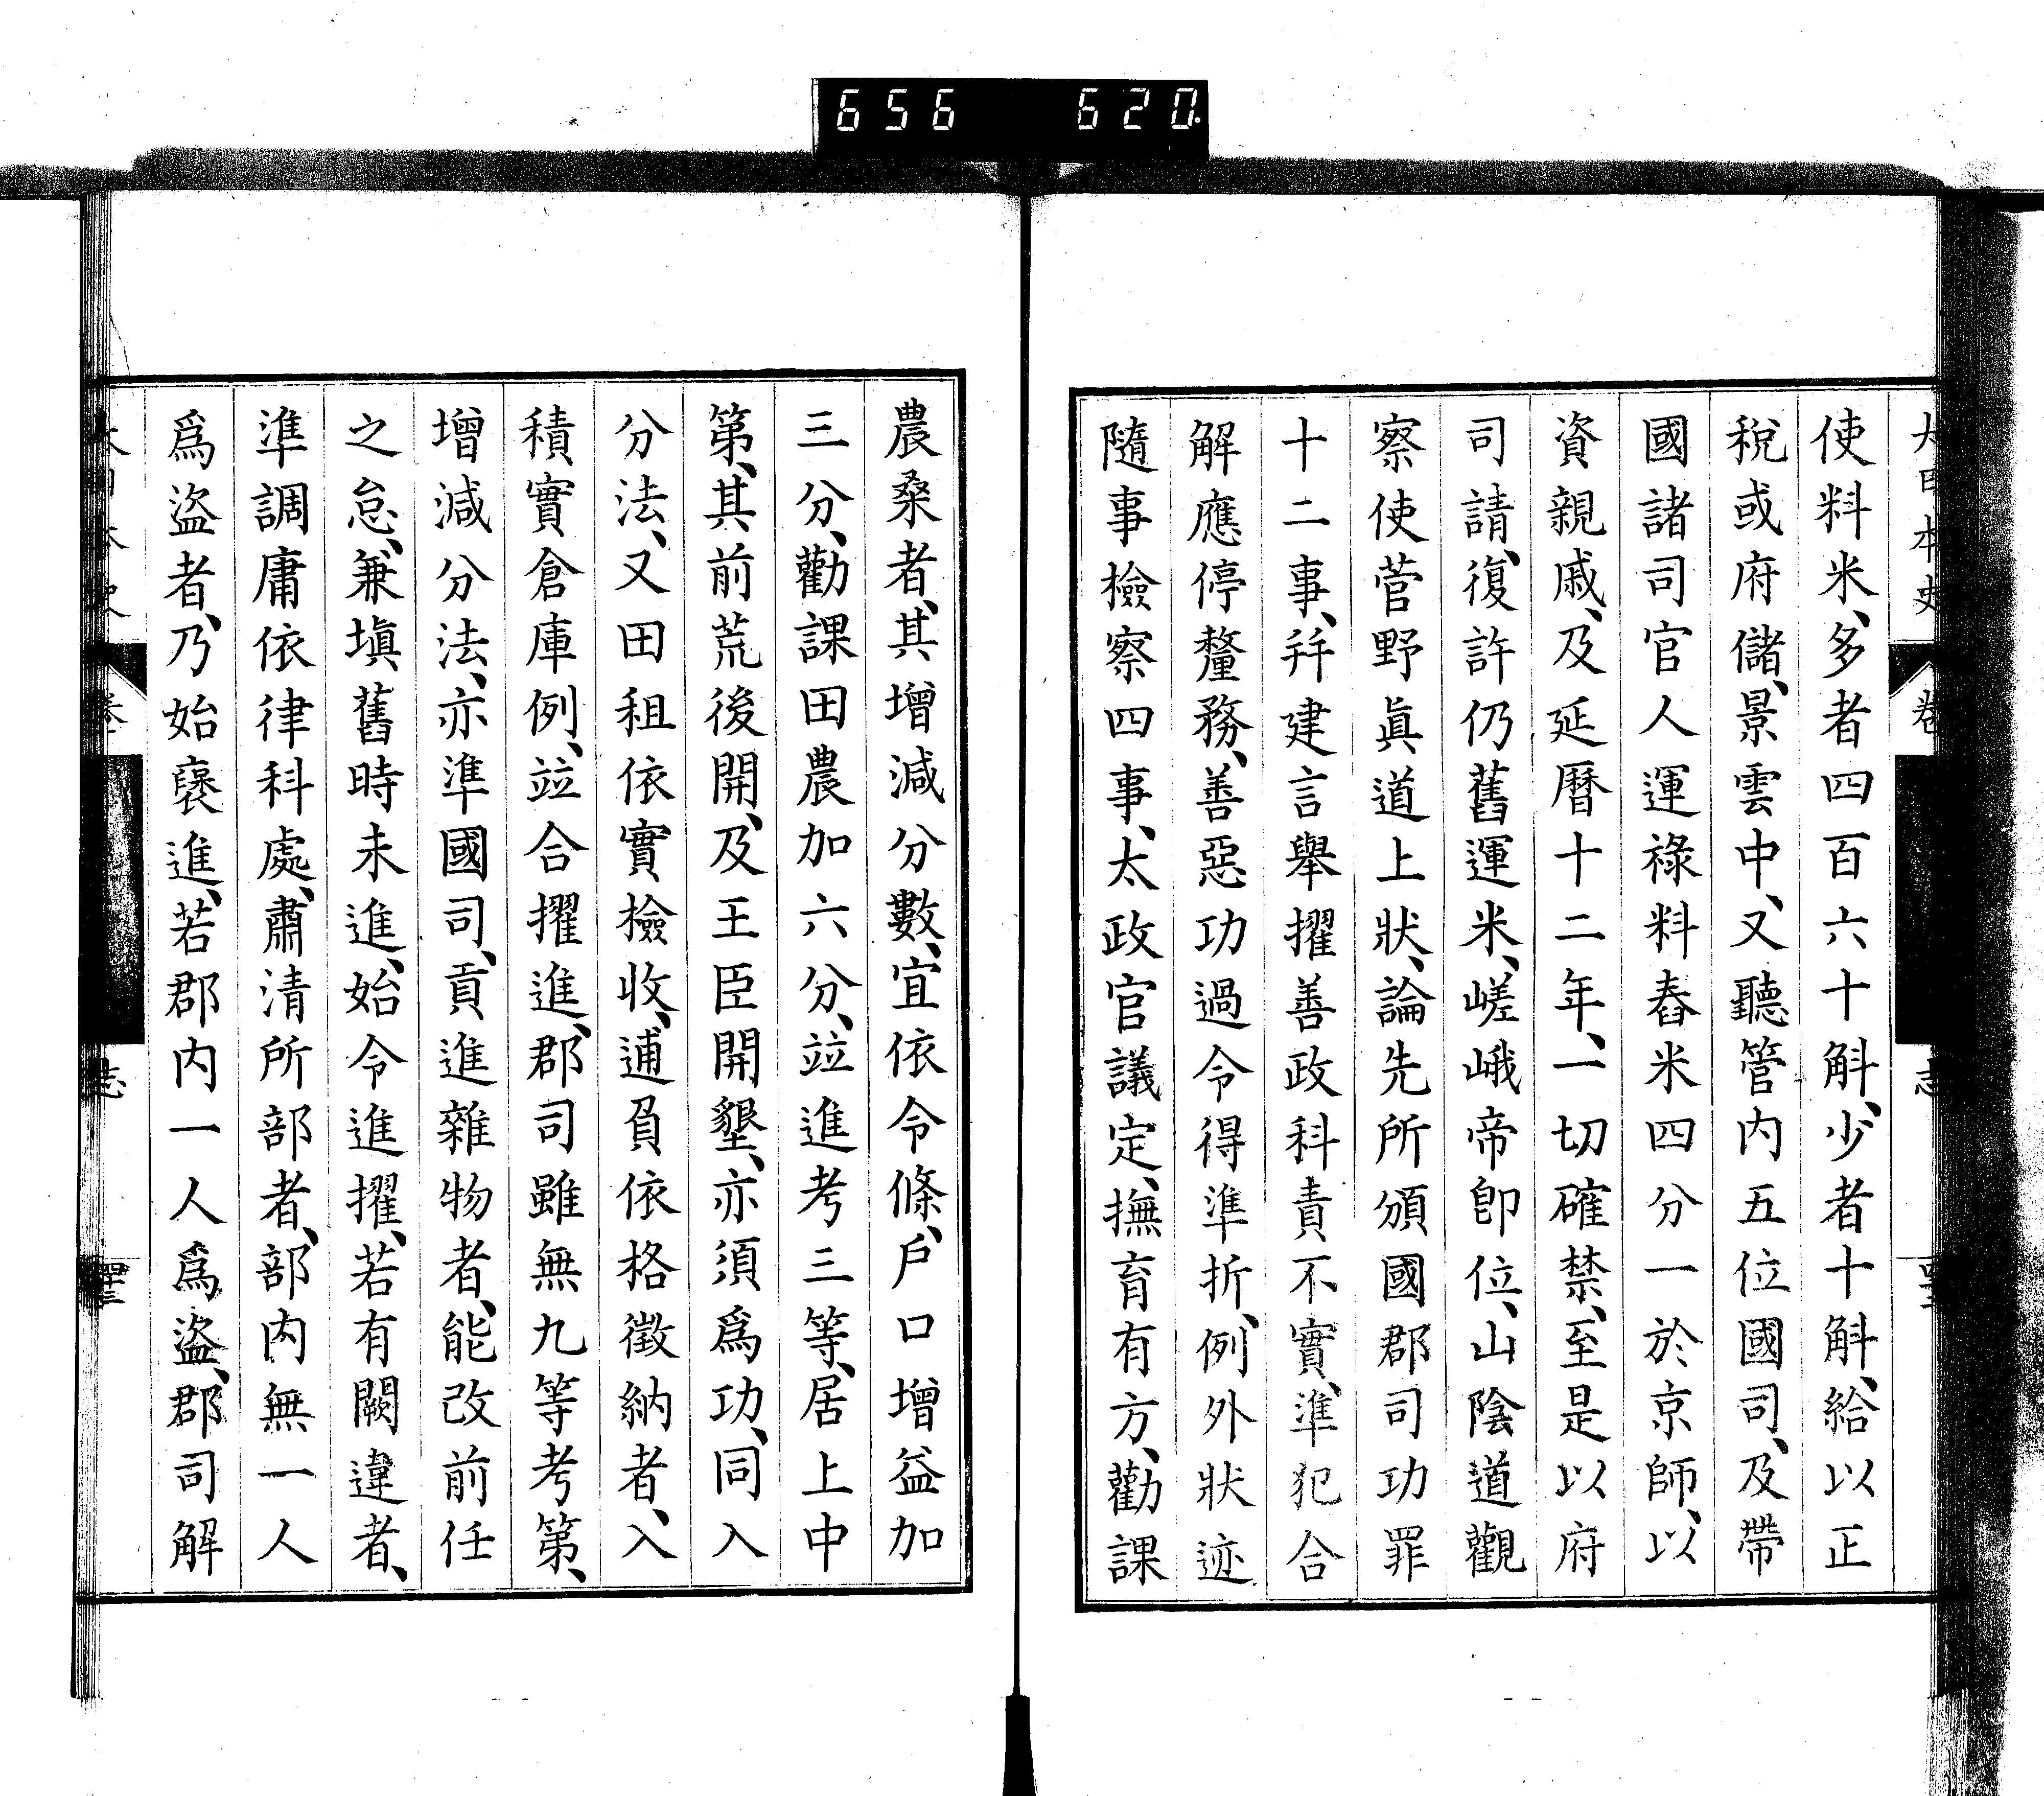 656 620.
使料米、多者四百六十斛、少者十斛、給以正
稅或府儲、景雲中、又聽管内五位國司、及帶
國諸司官人運祿料舂米四分一於京師、以
資親戚、及延曆十二年、一切確禁、至是以府
司請、復許仍舊運米、嵯峨帝卽位、山陰道觀
察使菅野眞道上狀、論先所頒國郡司功罪
十二事、幷建言舉擢善政科責不實、準犯合
解應停釐務、善惡功過令得準折、例外狀迹
隨事檢察四事、太政官議定、撫育有方、勸課
農桑者、其增減分數、宜依令條、戶口增益加
三分、勸課田農加六分、竝進考三等、居上中
第、其前荒後開、及王臣開墾、亦須爲功、同入
分法、又田租依實檢收、逋負依格徵納者、入
積實倉庫例、竝合擢進、郡司雖無九等考第、
增減分法、亦準國司、貢進雜物者、能改前任
之怠、兼塡舊時未進、始令進擢、若有闕違者、
準調庸依律科處、肅清所部者、部内無一人
爲盜者、乃始襃進、若郡内一人爲盜、郡司解